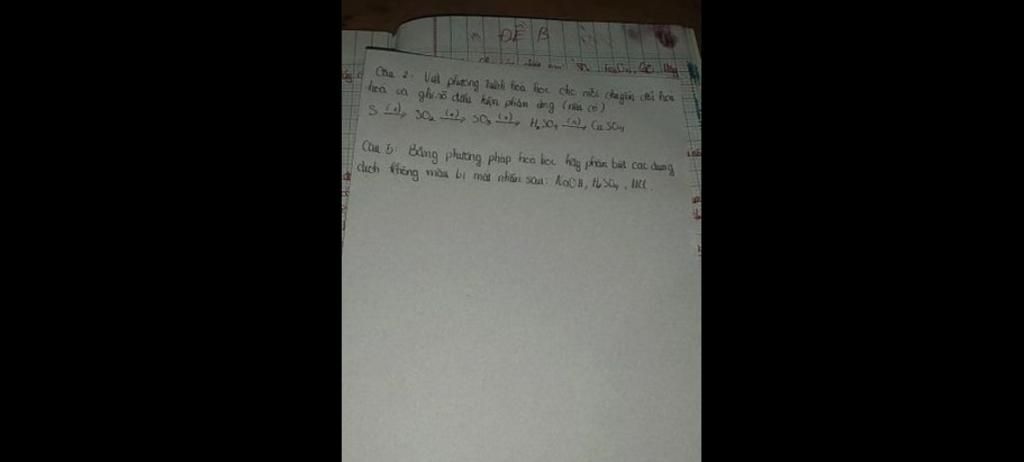 ĐỀ B
Câu 2: Viết phương trình hoá học cho mỗi chuyển đổi hóa
hoá và ghi rõ điều kiện phản ứng (nếu có)
S (1)→ SO₂ (2)→ SO₃ (3)→ H₂SO₄ (4)→ CuSO₄
Câu 5: Bằng phương pháp hoá học hãy phân biệt các dung
dịch không màu bị mất nhãn sau: NaOH, H₂SO₄, HCl.